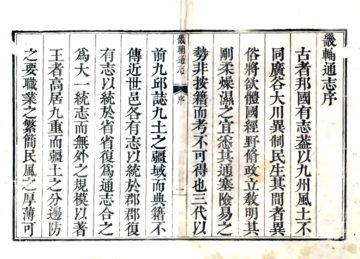 畿輔通志序
古者邦國有志蓋以九州風土不
同廣谷大川異制民生其間者異
俗將欲體國經野脩政立敎明其
剛柔燥濕之宜悉其通塞險易之
勢非按籍而考不可得也三代以
畿輔通志
序
一
前九邱誌九土之疆域而典籍不
傳近世邑各有志以統於郡郡復
有志以統於省省復爲通志合之
爲大一統志而無外之規模以著
王者高居九重而疆土之分邊防
之要職業之繁簡民風之厚薄可